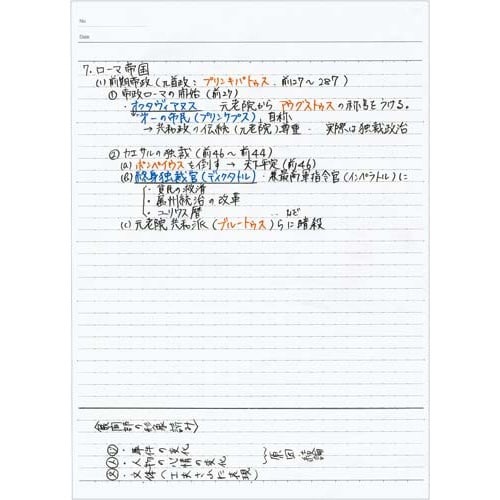 No.
Date
7. ローマ帝国
(1) 前期帝政(元首政:プリンキパトゥス. 前27〜287)
① 帝政ローマの開始(前27)
・オクタヴィアヌス 元老院から アウグストゥスの称号をうける。
"オーの市民(プリンケプス)"自称
→共和政の伝統(元老院)尊重. 実際は独裁政治
② カエサルの独裁(前46〜前44)
(a) ポンペイウスを倒す→天下平定(前46)
(B) 終身独裁官(ディクタトル)・最高軍指令官(インペラトル)に
・貧民の救済
・属州統治の改革
・ユリウス暦 … など
(c) 元老院共和派(ブルートゥス)らに暗殺
・事件の変化
・人物の心情の変化
・文体(工夫された表現
原因 結論